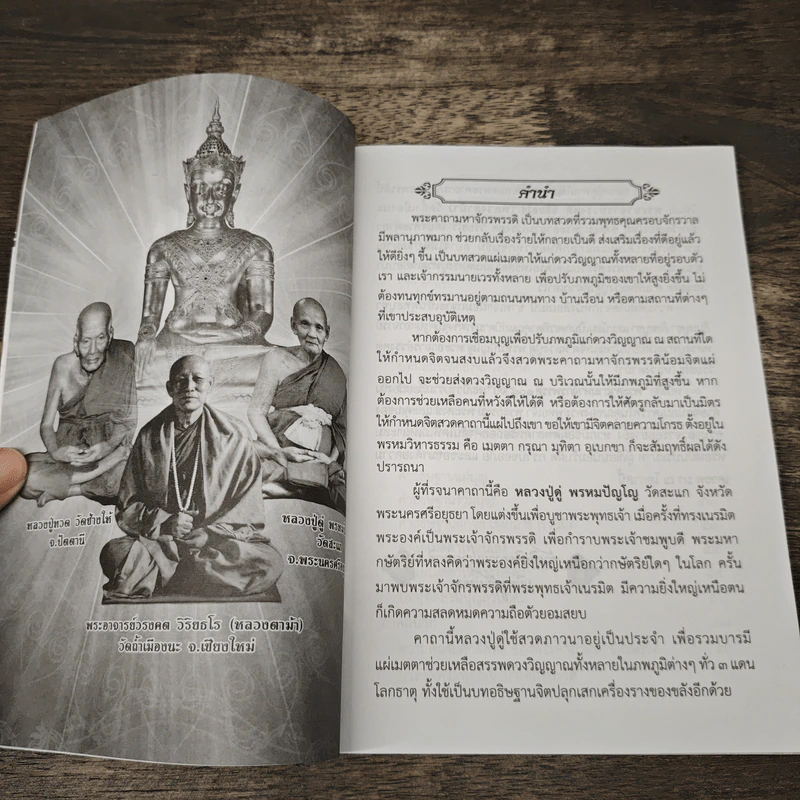 หลวงปู่ทวด วัดช้างให้
จ.ปัตตานี
หลวงปู่ดู่ พรหม
วัดสะแก
จ.พระนครศรี
พระอาจารย์วรงคต วิริยธโร (หลวงตาม้า)
วัดถ้ำเมืองนะ จ.เชียงใหม่
คำนำ
พระคาถามหาจักรพรรดิ เป็นบทสวดที่รวมพุทธคุณครอบจักรวาล
มีพลานุภาพมาก ช่วยกลับเรื่องร้ายให้กลายเป็นดี ส่งเสริมเรื่องที่ดีอยู่แล้ว
ให้ดียิ่งๆ ขึ้น เป็นบทสวดแผ่เมตตาให้แก่ดวงวิญญาณทั้งหลายที่อยู่รอบตัว
เรา และเจ้ากรรมนายเวรทั้งหลาย เพื่อปรับภพภูมิของเขาให้สูงยิ่งขึ้น ไม่
ต้องทนทุกข์ทรมานอยู่ตามถนนหนทาง บ้านเรือน หรือตามสถานที่ต่างๆ
ที่เขาประสบอุบัติเหตุ
หากต้องการเชื่อมบุญเพื่อปรับภพภูมิแก่ดวงวิญญาณ ณ สถานที่ใด
ให้กำหนดจิตจนสงบแล้วจึงสวดพระคาถามหาจักรพรรดิน้อมจิตแผ่
ออกไป จะช่วยส่งดวงวิญญาณ ณ บริเวณนั้นให้มีภพภูมิที่สูงขึ้น หาก
ต้องการช่วยเหลือคนที่หวังดีให้ได้ดี หรือต้องการให้ศัตรูกลับมาเป็นมิตร
ให้กำหนดจิตสวดคาถานี้แผ่ไปถึงเขา ขอให้เขามีจิตคลายความโกรธ ตั้งอยู่ใน
พรหมวิหารธรรม คือ เมตตา กรุณา มุทิตา อุเบกขา ก็จะสัมฤทธิ์ผลได้ดัง
ปรารถนา
ผู้ที่รจนาคาถานี้คือ หลวงปู่ดู่ พรหมปัญโญ วัดสะแก จังหวัด
พระนครศรีอยุธยา โดยแต่งขึ้นเพื่อบูชาพระพุทธเจ้า เมื่อครั้งที่ทรงเนรมิต
พระองค์เป็นพระเจ้าจักรพรรดิ เพื่อกำราบพระเจ้าชมพูบดี พระมหา
กษัตริย์ที่หลงคิดว่าพระองค์ยิ่งใหญ่เหนือกว่ากษัตริย์ใดๆ ในโลก ครั้น
มาพบพระเจ้าจักรพรรดิที่พระพุทธเจ้าเนรมิต มีความยิ่งใหญ่เหนือตน
ก็เกิดความสลดหมดความถือตัวยอมสยบ
คาถานี้หลวงปู่ดู่ใช้สวดภาวนาอยู่เป็นประจำ เพื่อรวมบารมี
แผ่เมตตาช่วยเหลือสรรพดวงวิญญาณทั้งหลายในภพภูมิต่างๆ ทั่ว ๓ แดน
โลกธาตุ ทั้งใช้เป็นบทอธิษฐานจิตปลุกเสกเครื่องรางของขลังอีกด้วย